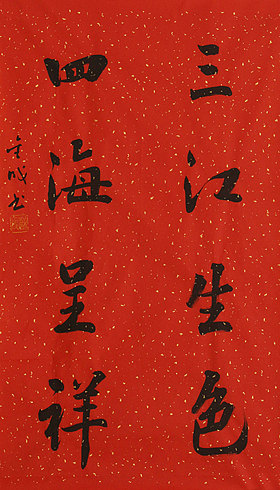 三江生色
四海呈祥